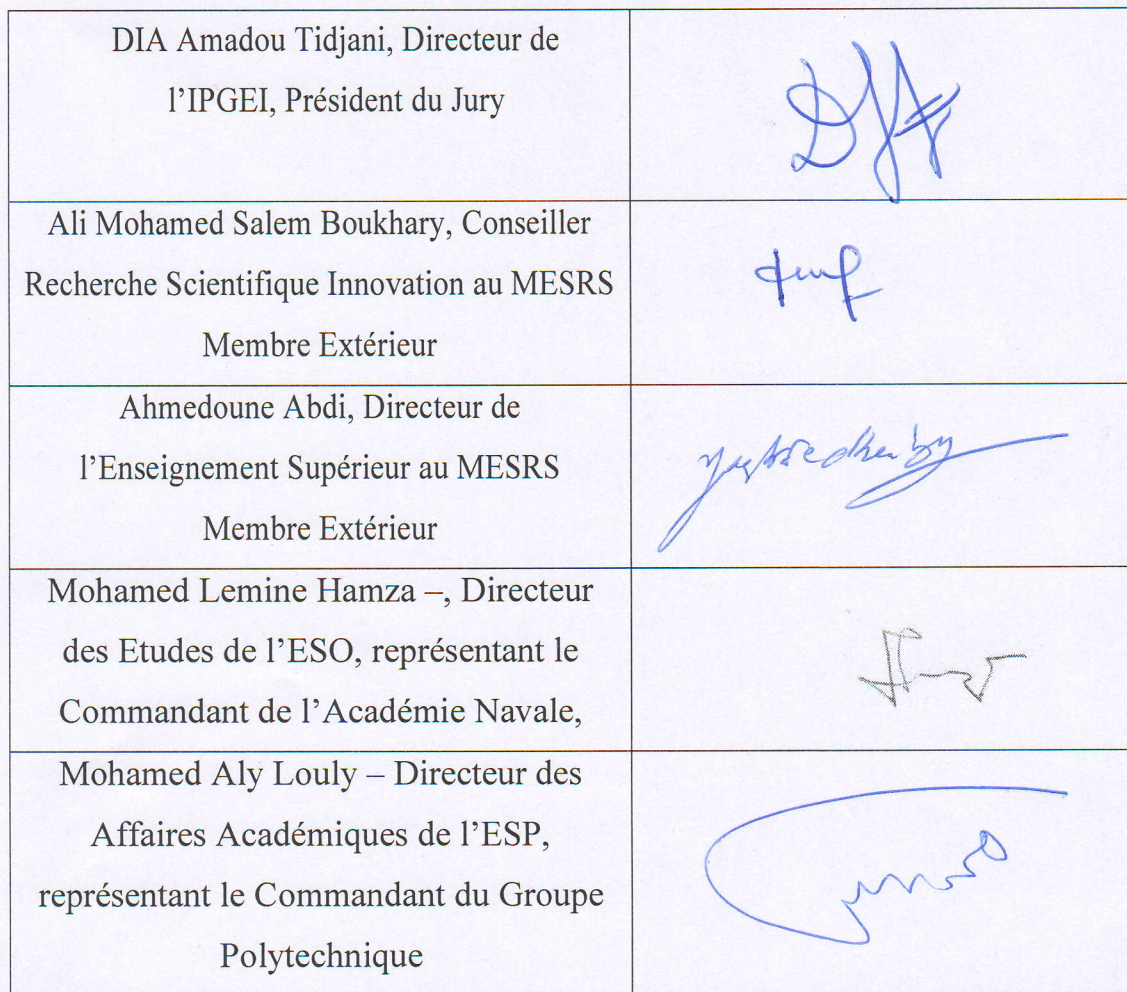 DIA Amadou Tidjani, Directeur de
l’IPGEI, Président du Jury
Ali Mohamed Salem Boukhary, Conseiller
Recherche Scientifique Innovation au MESRS
Membre Extérieur
Ahmedoune Abdi, Directeur de
l’Enseignement Supérieur au MESRS
Membre Extérieur
Mohamed Lemine Hamza –, Directeur
des Etudes de l’ESO, représentant le
Commandant de l’Académie Navale,
Mohamed Aly Louly – Directeur des
Affaires Académiques de l’ESP,
représentant le Commandant du Groupe
Polytechnique